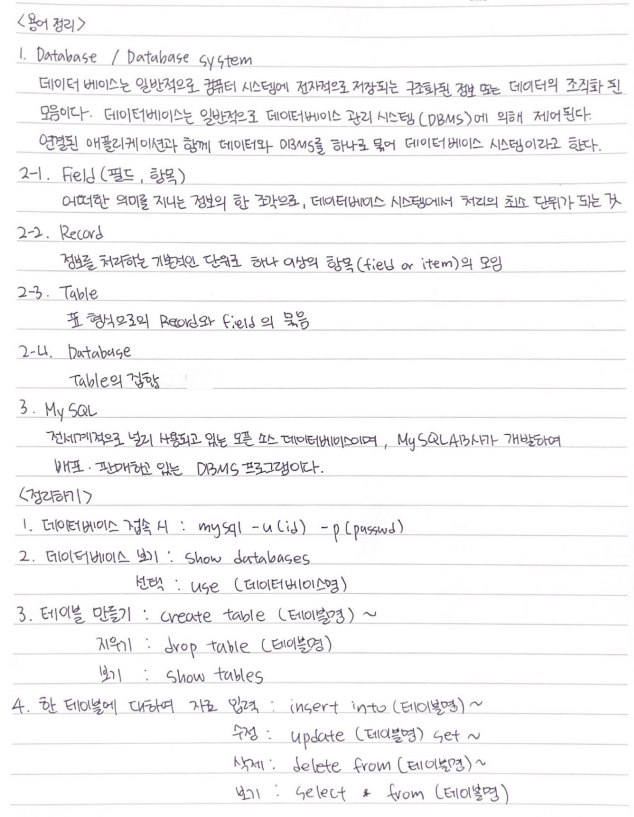 <용어 정리>
1. Database / Database system
데이터 베이스는 일반적으로 컴퓨터 시스템에 전자적으로 저장되는 구조화된 정보 또는 데이터의 조직화 된
모음이다. 데이터베이스는 일반적으로 데이터베이스 관리 시스템(DBMS)에 의해 제어된다.
연결된 애플리케이션과 함께 데이터와 DBMS를 하나로 묶어 데이터베이스 시스템이라고 한다.
2-1. Field (필드, 항목)
어떠한 의미를 지니는 정보의 한 조각으로, 데이터베이스 시스템에서 처리의 최소 단위가 되는 것
2-2. Record
정보를 처리하는 기본적인 단위로 하나 이상의 항목(field or item)의 모임
2-3. Table
표 형식으로의 Record와 Field의 묶음
2-4. Database
Table의 집합
3. My SQL
전세계적으로 널리 사용되고 있는 오픈 소스 데이터베이스이며, MySQLAB사가 개발하여
배포·판매하고 있는 DBMS 프로그램이다.
<정리하기>
1. 데이터베이스 접속 시 : mysql -u(id) -p(passwd)
2. 데이터베이스 보기 : show databases
선택 : use (데이터베이스명)
3. 테이블 만들기 : create table (테이블명) ~
지우기 : drop table (테이블명)
보기 : show tables
4. 한 테이블에 대하여 자료 입력 : insert into (테이블명) ~
수정 : update (테이블명) set ~
삭제 : delete from (테이블명) ~
보기 : select * from (테이블명)